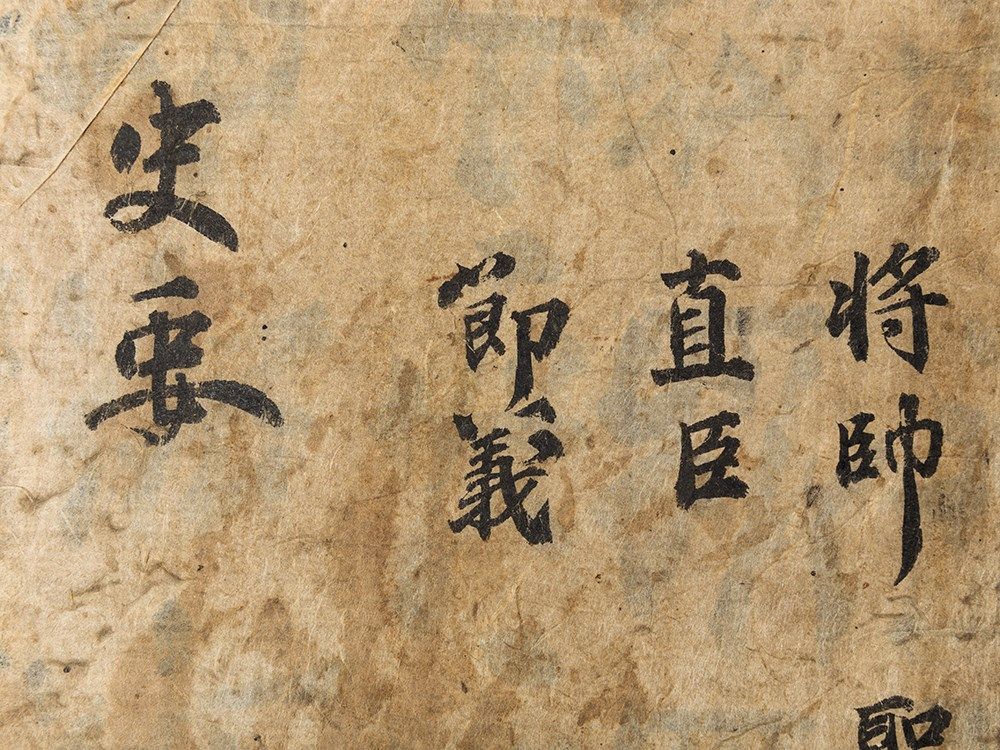 将帥
直臣
節義
史要